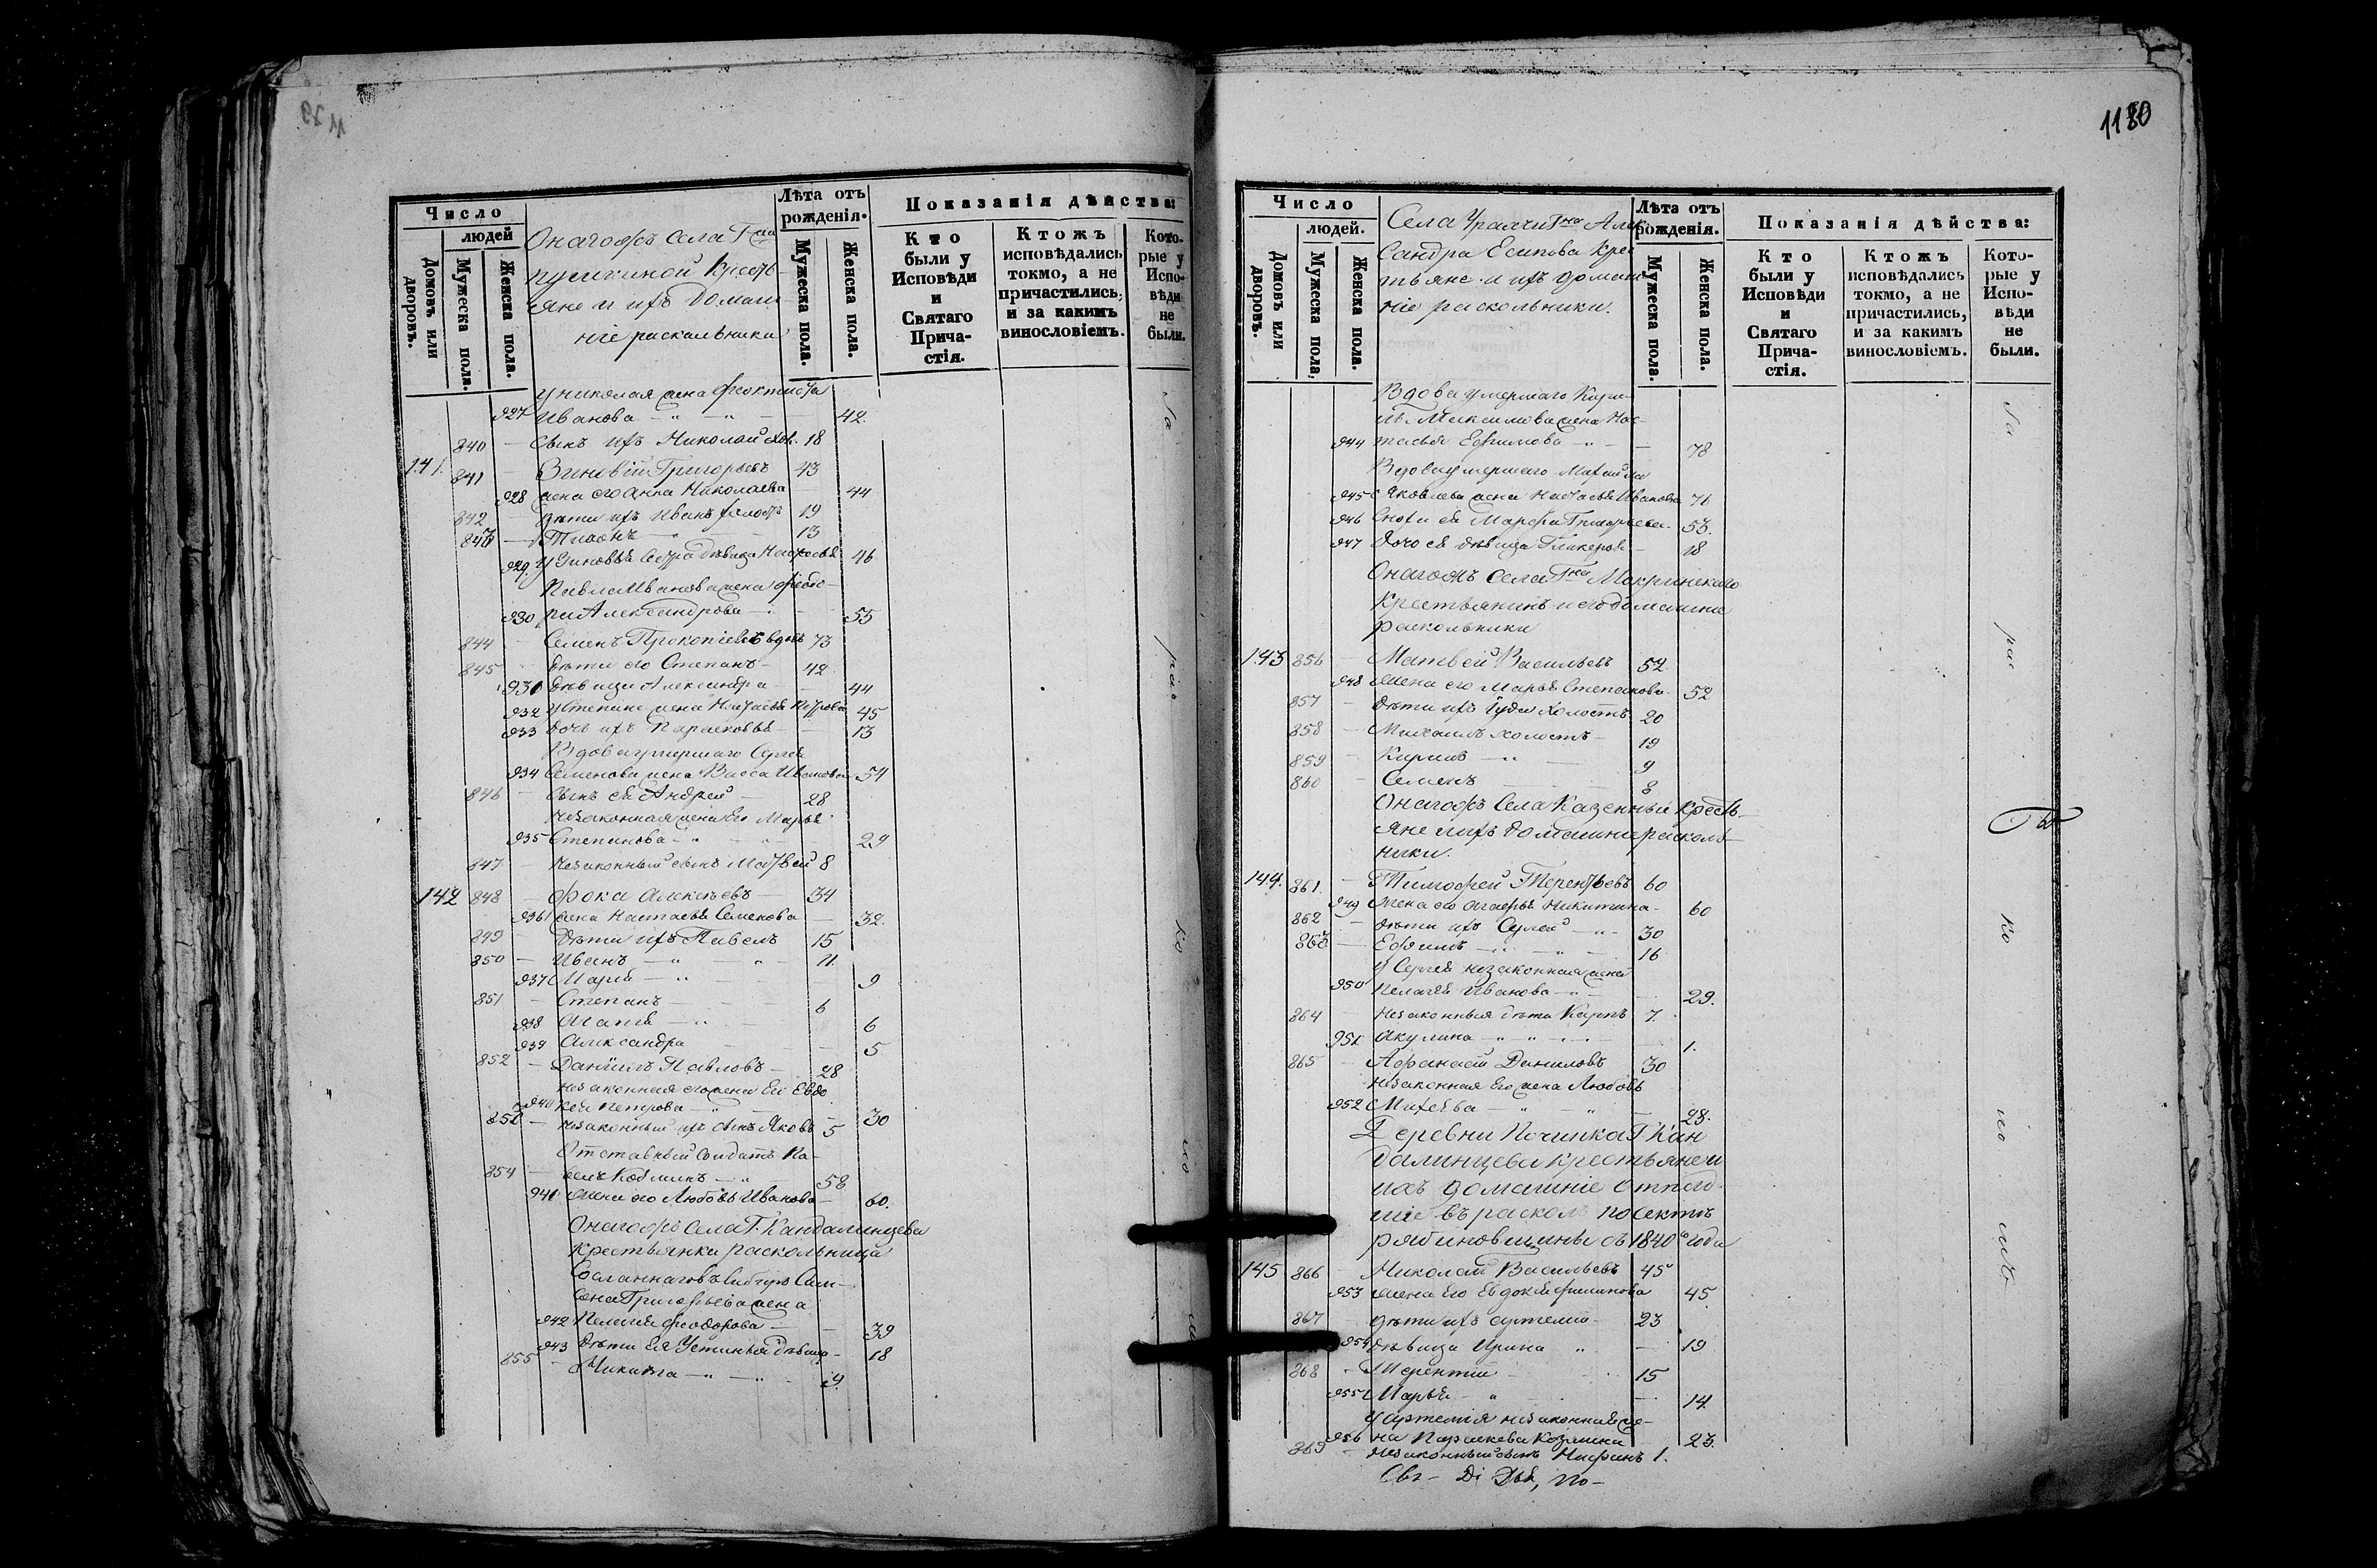 Число
людей
Домовъ или дворовъ.
Мужеска пола.
Женска пола.
Онагожъ села Гжи
пушкиной Кресть-
яне и ихъ домаш-
ніе раскольники
Лѣта отъ рожденія.
Мужеска пола.
Женска пола.
Показанія дѣйства:
Кто были у Исповѣди и Святаго Прича-стія.
Ктожъ исповѣдались токмо, а не причастились, и за какимъ винословіемъ.
Кото-рые у Испо-вѣди не были.
у николая жена Феоктиста
927 Иванова 42.
840 Сынъ ихъ Николай хол. 18
141. 841 Зиновій Григорьевъ 43
928 жена его анна Николаева 44
842 дѣти ихъ Иванъ холостъ 19
843 Тихонъ 13
929. У Зиновья Сестра дѣвица Настасья 46
Павла Иванова жена Ѳеодо-
930 ра Александрова 55
844 Семенъ Прокопіевъ вдовъ 73
845 дѣти его Степанъ 42
931 дѣвица Александра 44
932 У Степана жена Настасья Петрова 45
933 дочь ихъ Парасковья 13
Вдова умершаго Сергея
934 Семенова жена Васса Иванова 54
846 Сынъ ея Андрей 28
незаконная жена Его Марья
935 Степанова 29
847 незаконный сынъ Матвей 8
142 848 Фока алексѣевъ 34
936 жена Настасья Семенова 32.
849 дѣти ихъ Павелъ 15
850 Иванъ 11.
937 Марья 9
851 Степанъ 6
938 Агафья 6
939 Александра 5
852 Даніилъ Павловъ 28
незаконная жена Ег Евдо
940 кея петрова 30
853 незаконный ихъ сынъ Яковъ 5
Отставный солдатъ
854 58
941 жена его Любовь Иванова 60.
Онагожъ села Г. Кандалинцева
Крестьянка раскольница
Сосланнаго въ Сибирь Сам-
сона Григорьева жена
942 Пелагея Феодорова 39
943 дѣти Ея Устинья дѣвица 18
855 Никита 9.
За
рас
ко
1180
Число
людей.
Домовъ или дворовъ.
Мужеска пола,
Женска пола.
Села Гна Алек
сандра Есипова Крес
тьяне и ихъ домаш
ніе раскольники.
Лѣта отъ рожденія.
Мужеска пола.
Женска пола.
Показанія дѣйства:
Кто были у Исповѣди и Святаго Прича-стія.
Ктожъ исповѣдались токмо, а не причастились, и за какимъ винословіемъ.
Кото-рые у Испо-вѣди не были.
Вдова умершаго Кири-
лы Максимова жена Нас-
944 тасья Ефимова 78
Вдова умершаго Михайла
945 Яковлева жена Настасья Иванова 71
946 Сноха ея Марфа Григорьева 53.
947 дочь ея дѣвица Гликерья 18
Онагожъ села Гна Макринскаго
Крестьянинъ и его домашніе
раскольники
143 856 Матвей Васильевъ 52
948 жена его Марья Степанова 52
857 дѣти ихъ Іуда холостъ 20
858 Михаилъ холостъ 19
859 Кирилъ 9
860 Семенъ 8
Онагожъ села Казенный Кресть-
яне и ихъ домашніе расколь-
ники.
144. 861. Тимофей Терентьевъ 60
949 Жена его Никитина 60
862 дѣти ихъ Сергей 30
863 Ефимъ 16
У Сергея незаконная жена
950 Пелагея Иванова 29.
864 незаконныя дѣти Карпъ 7.
951 Акулина 1.
865 Афанасій Даниловъ 30
незаконная Его жена Любовь
952 Михеева 28.
Деревни Починка Г Кан
далинцева крестьяне и
ихъ домашніе отпад-
шіе въ расколъ по сектѣ
рябиновщины съ 1840го года
145 866 Николай Васильевъ 45
953 жена Его Евдокея филипова 45
867 дѣти ихъ артемій 23
954 дѣвица Ирина 19
868 Терентій 15
955 Марья 14
у артемія незаконная же-
956 на Параскева Козмина 23.
869 незаконный сынъ 1.
За
рас
ко